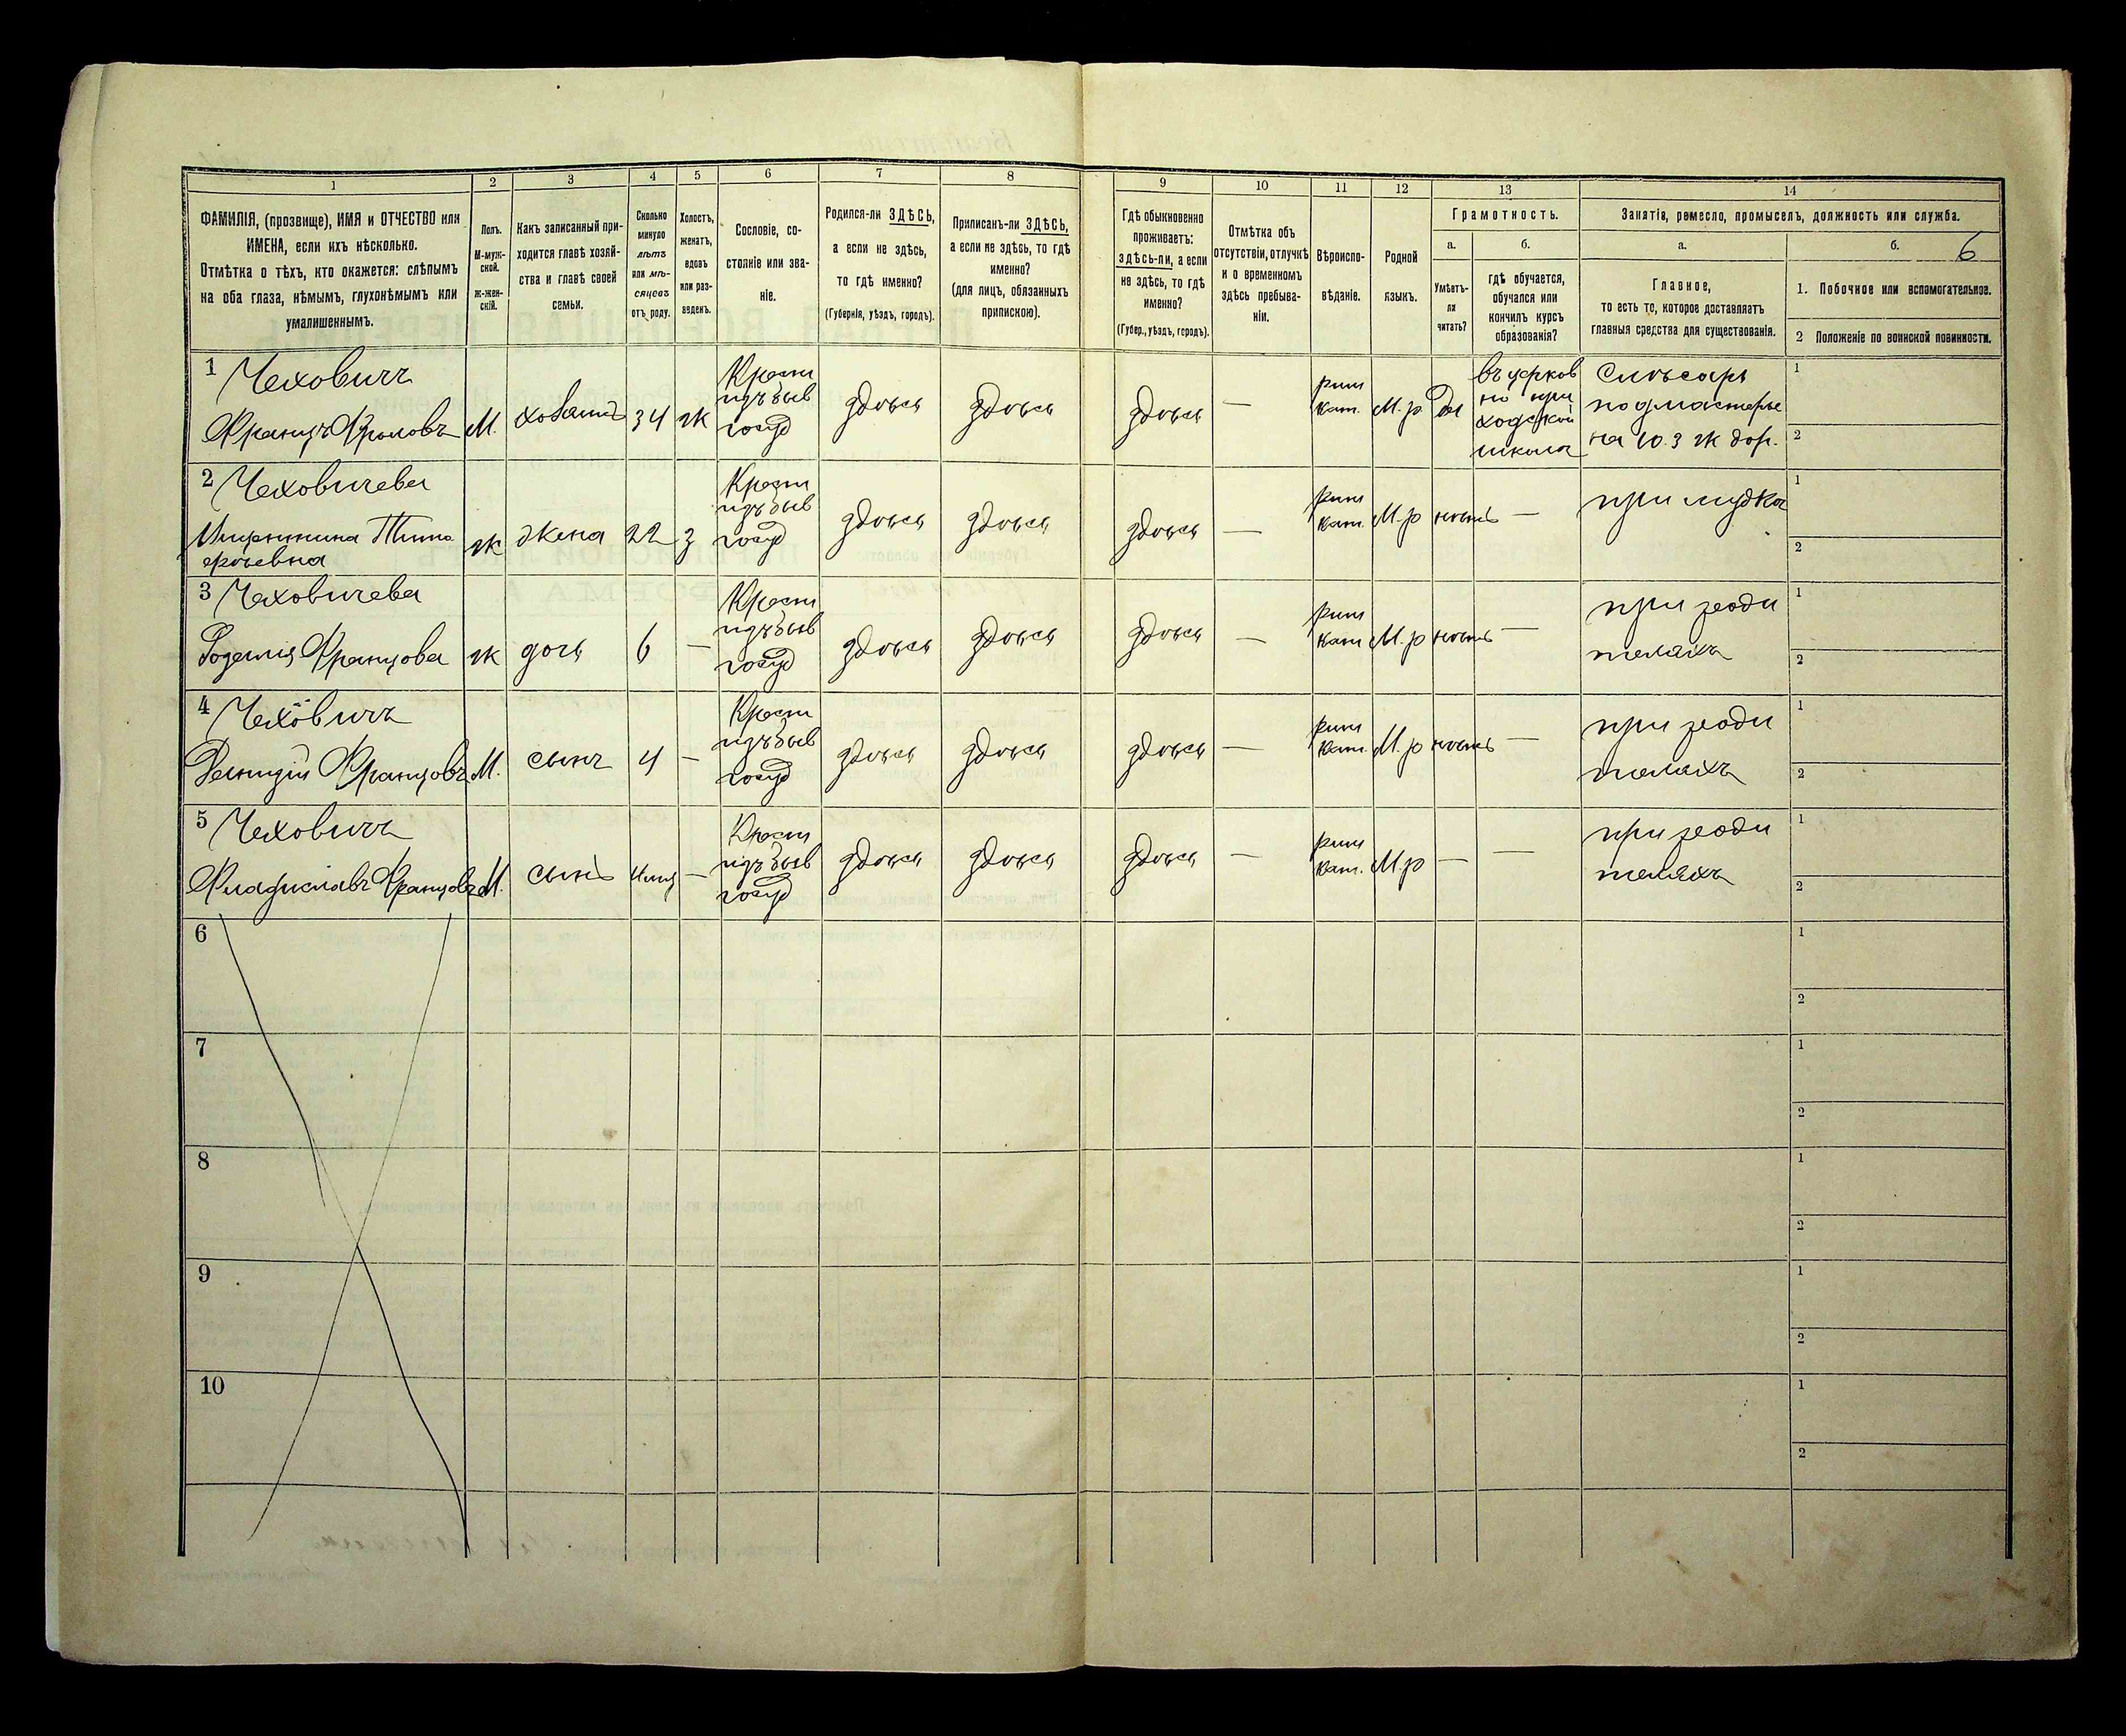 1 2 3 4 5 6 7 8 9 10 11 12 13 14
ФАМИЛІЯ, (прозвище), ИМЯ и ОТЧЕСТВО или
ИМЕНА, если ихъ нѣсколько.
Отмѣтка о тѣхъ, кто окажется: слѣпымъ
на оба глаза, нѣмымъ, глухонѣмымъ или
умалишеннымъ.
Полъ.
М-муж-
ской.
Ж-жен-
скій.
Какъ записанный при-
ходится главѣ хозяй-
ства и главѣ своей
семьи.
Сколько
минуло
лѣтъ
или мѣ-
сяцевъ
отъ роду.
Холостъ,
женатъ,
вдовъ
или раз-
веденъ.
Сословіе, со-
стояніе или зва-
ніе.
Родился-ли ЗДѢСЬ,
а если не здѣсь,
то гдѣ именно?
(Губернія, уѣздъ, городъ).
Приписанъ-ли ЗДѢСЬ,
а если не здѣсь, то гдѣ
именно?
(для лицъ, обязанныхъ
припискою).
Гдѣ обыкновенно
проживаетъ:
здѣсь-ли, а если
не здѣсь, то гдѣ
именно?
(Губер., уѣздъ, городъ).
Отмѣтка объ
отсутствіи, отлучкѣ
и о временномъ
здѣсь пребыва-
ніи.
Вѣроиспо-
вѣданіе.
Родной
языкъ.
Грамотность.
а.
Умѣетъ-
ли
читать?
б.
гдѣ обучается,
обучался или
кончилъ курсъ
образованія?
Занятіе, ремесло, промыселъ, должность или служба.
а.
Главное,
то есть то, которое доставляетъ
главныя средства для существованія.
б. 6
1. Побочное или вспомогательное.
2 Положеніе по воинской повинности.
1 Чеховичъ
Францъ Фроловъ
М.
хозяинъ
34
ж
Крест
изъ быв
госуд
здѣсь
здѣсь
здѣсь
—
рим
кат.
М.р
да
въ церков
но при
ходской
школѣ
Слѣсарь
подмастерье
на Ю.З ж дор.
1
2
2 Чеховичева
ж
жена
22
з
Крест
изъ быв
госуд
здѣсь
здѣсь
здѣсь
—
рим
кат.
М.р
нѣтъ
—
при мужѣ
1
2
3 Чеховичева
Францова
ж
дочь
6
—
Крест
изъ быв
госуд
здѣсь
здѣсь
здѣсь
—
рим
кат
М.р
нѣтъ
—
при роди
теляхъ
1
2
4 Чеховичъ
Францовъ
М.
сынъ
4
—
Крест
изъ быв
госуд
здѣсь
здѣсь
здѣсь
—
рим
кат.
М.р
нѣтъ
—
при роди
теляхъ
1
2
5 Чеховичъ
Владиславъ Францовъ
М.
сынъ
—
Крест
изъ быв
госуд
здѣсь
здѣсь
здѣсь
—
рим
кат.
М.р
—
—
при роди
теляхъ
1
2
6
1
2
7
1
2
8
1
2
9
1
2
10
1
2